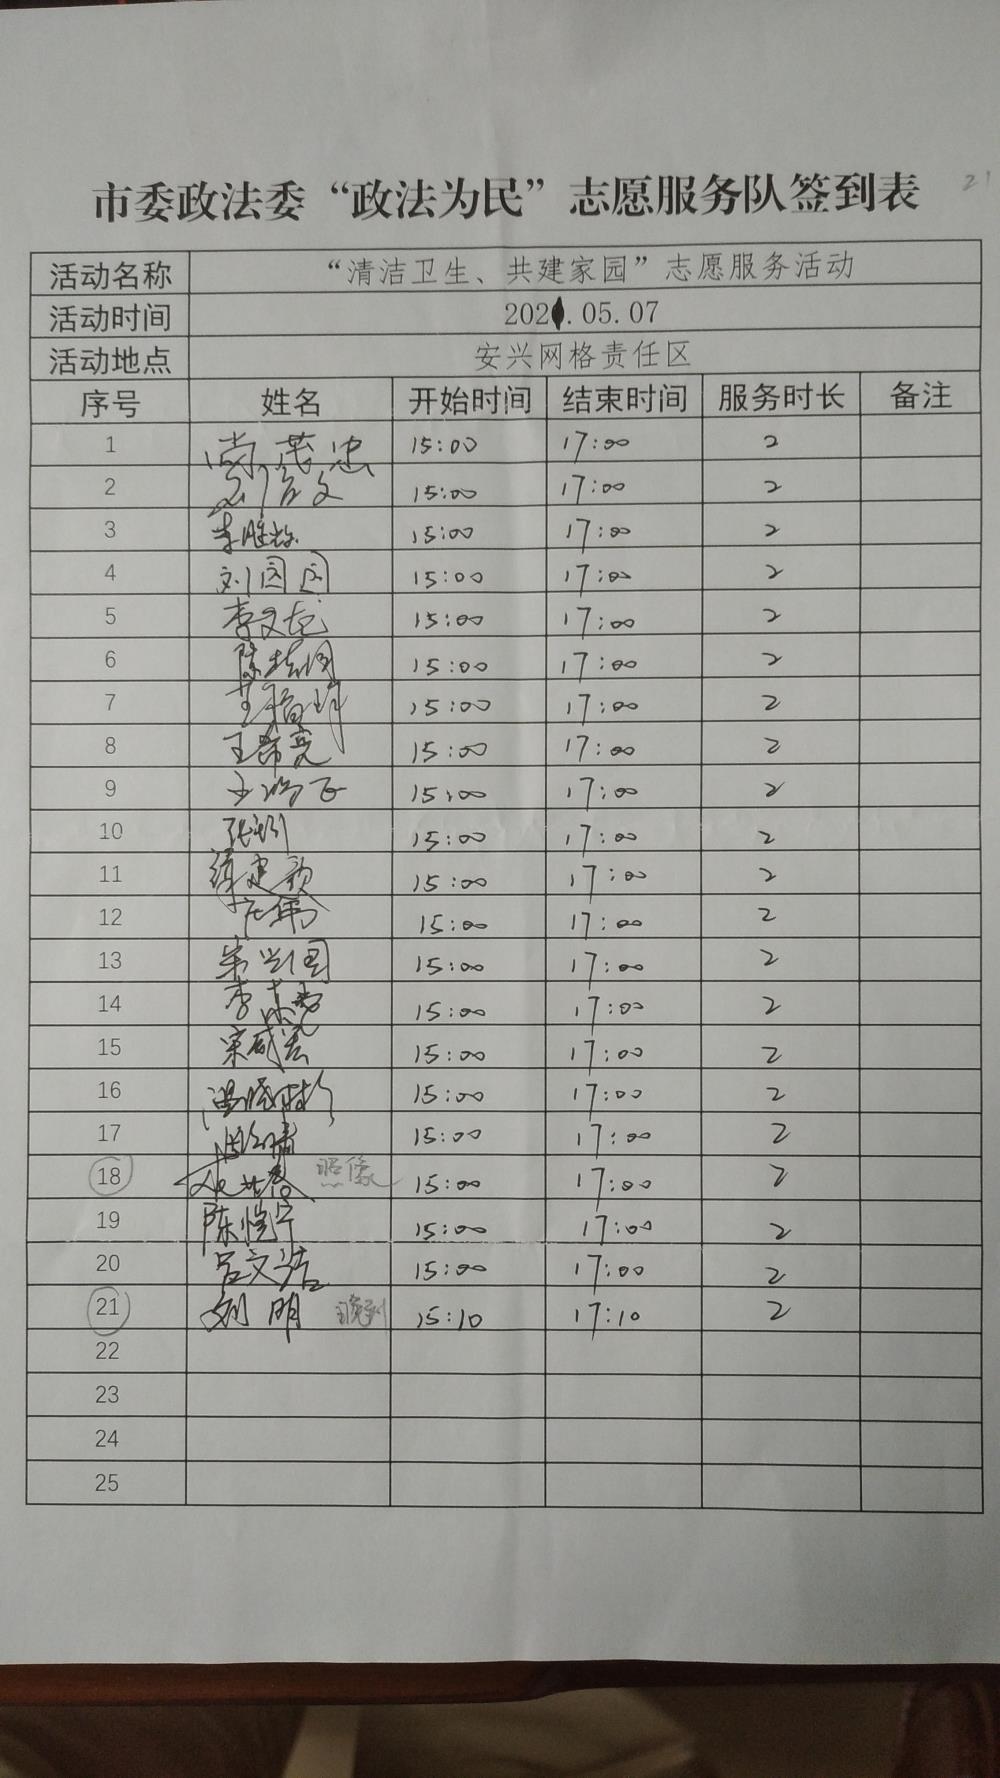 21
市委政法委“政法为民”志愿服务队签到表
活动名称 “清洁卫生、共建家园”志愿服务活动
活动时间 202 .05.07
活动地点 安兴网格责任区
序号 姓名 开始时间 结束时间 服务时长 备注
1 15:00 17:00 2
2 15:00 17:00 2
3 15:00 17:00 2
4 刘园园 15:00 17:00 2
5 李文龙 15:00 17:00 2
6 15:00 17:00 2
7 15:00 17:00 2
8 王希亮 15:00 17:00 2
9 15:00 17:00 2
10 15:00 17:00 2
11 15:00 17:00 2
12 15:00 17:00 2
13 15:00 17:00 2
14 15:00 17:00 2
15 15:00 17:00 2
16 15:00 17:00 2
17 15:00 17:00 2
18 照像 15:00 17:00 2
19 陈恺宁 15:00 17:00 2
20 吕文洁 15:00 17:00 2
21 刘明 晚到 15:10 17:10 2
22
23
24
25